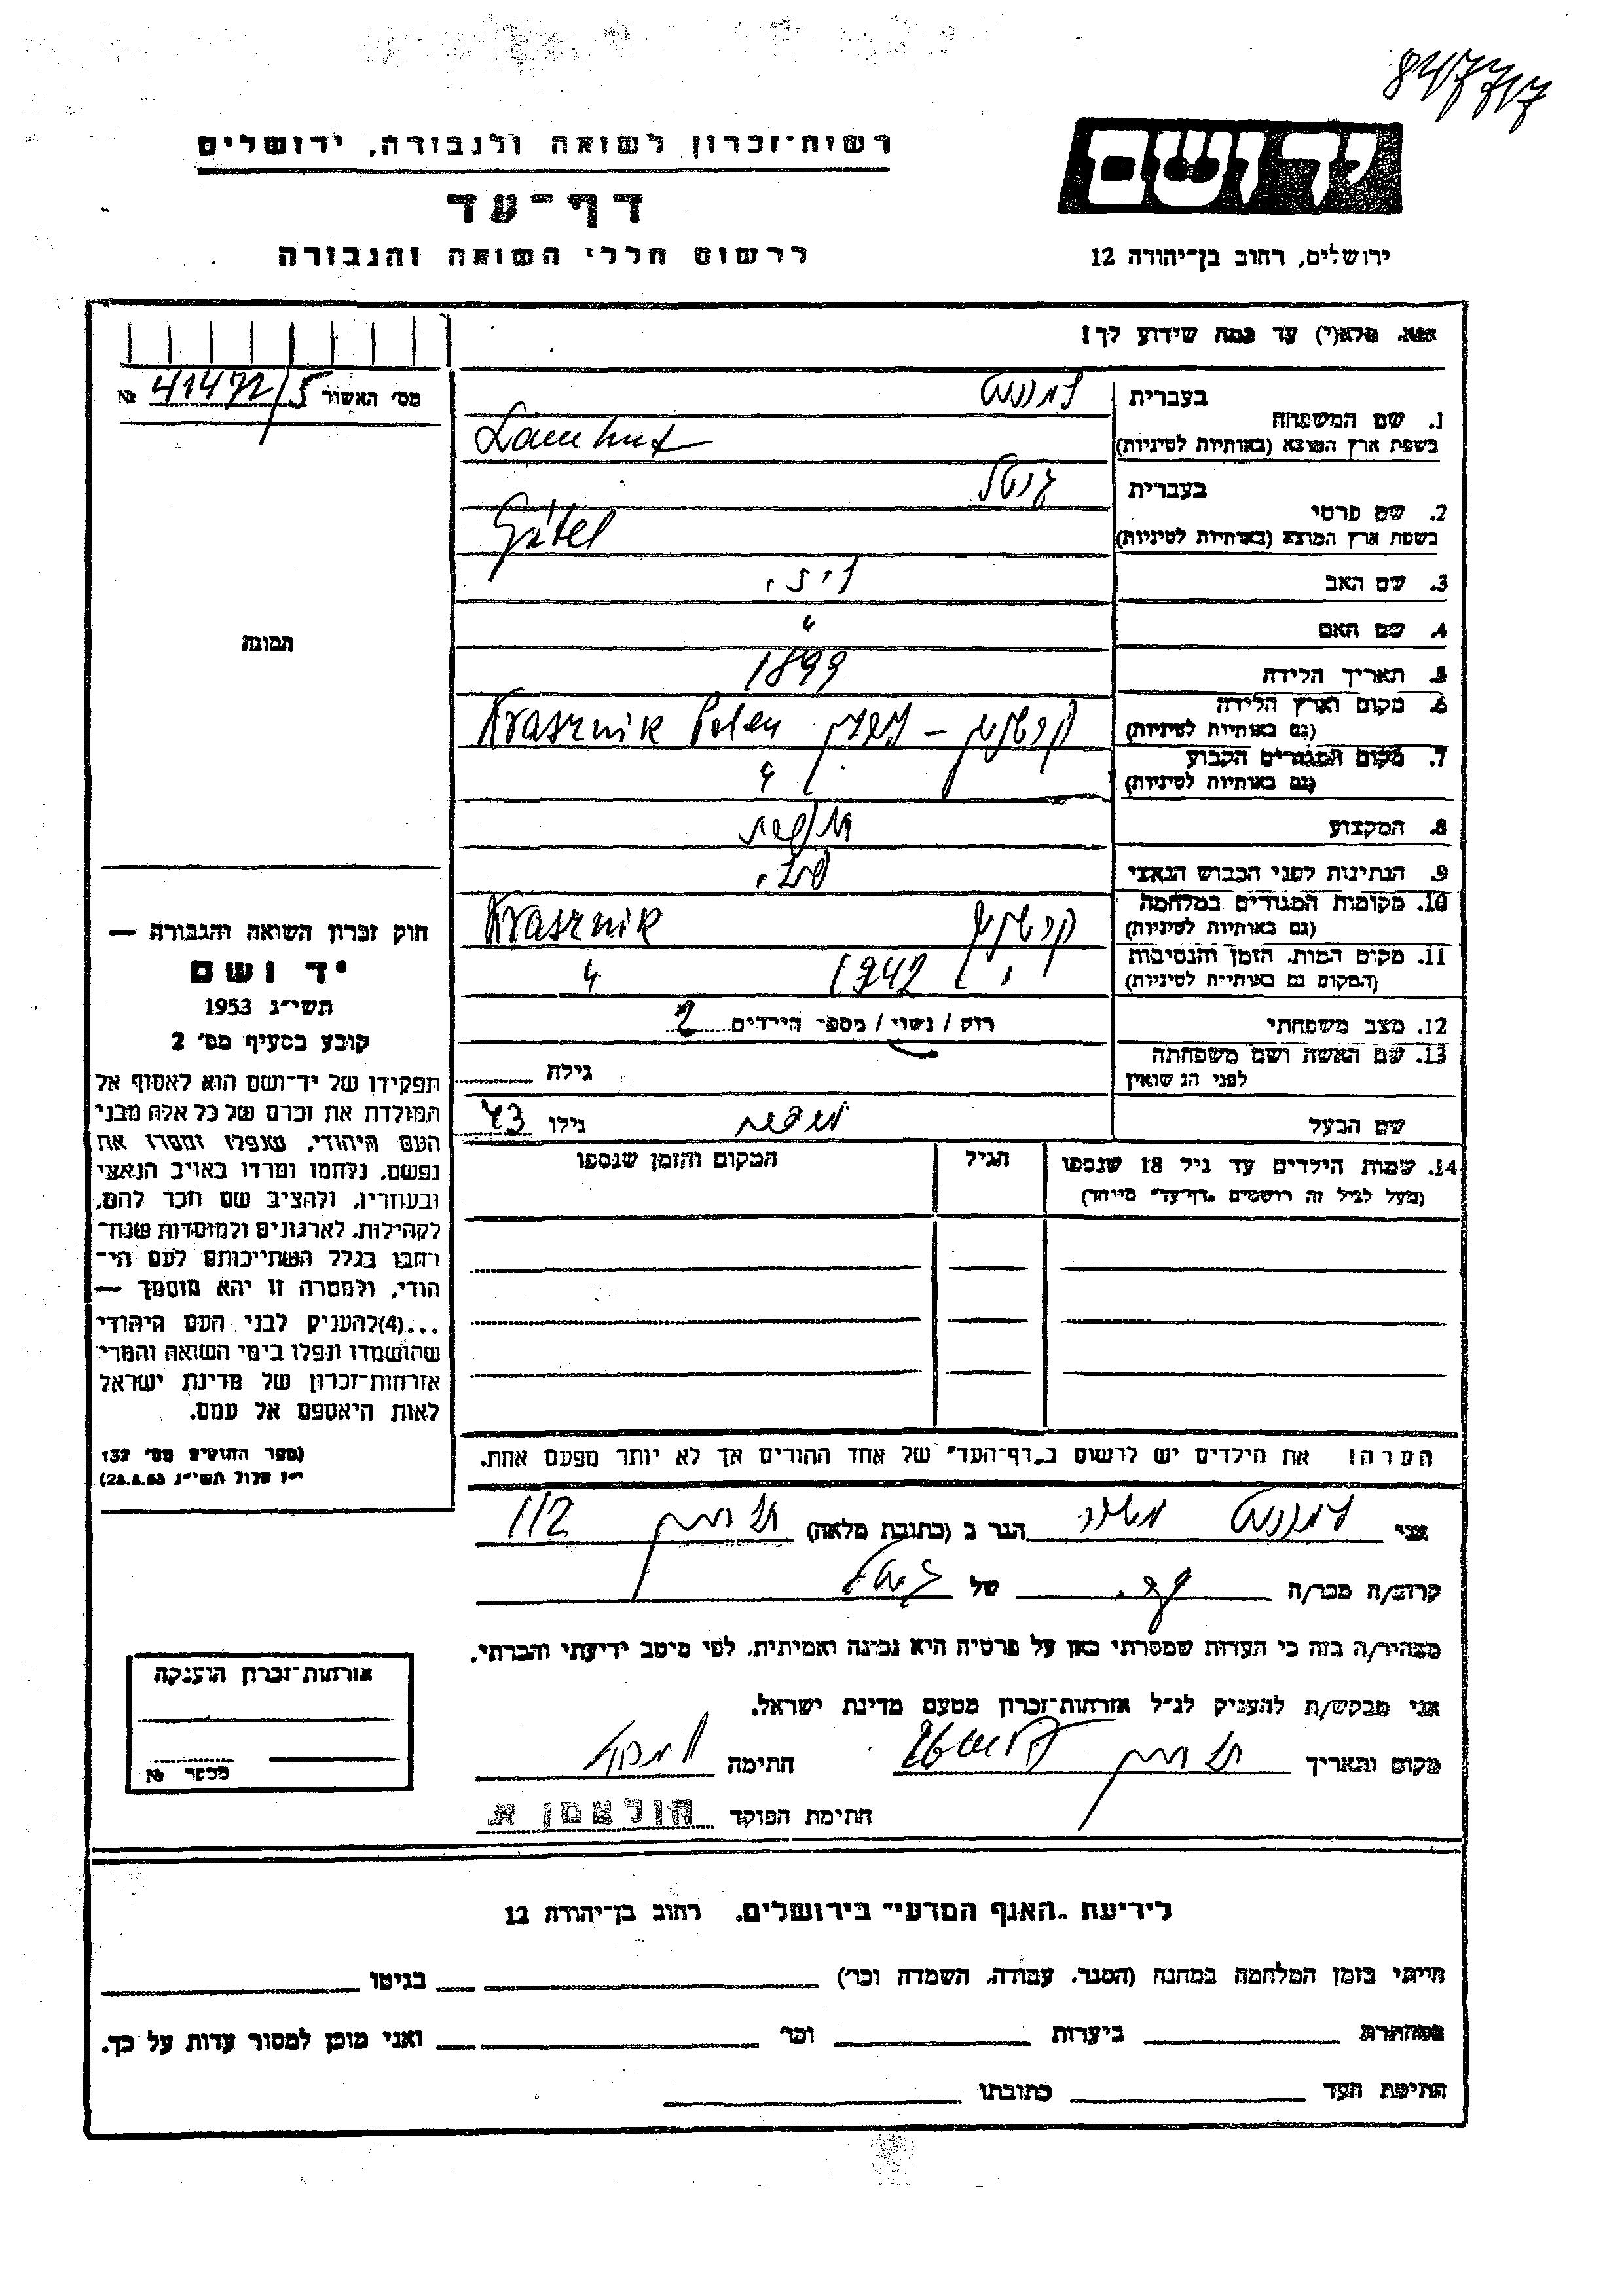 847717
יד ושם
ירושלים, רחוב בן־יהודה 12
רשות־זכרון לשואה ולגבורה, ירושלים
דף־עד
לרשום חללי השואה והגבורה
אנא, מלא(י) עד כמה שידוע לך!
מס׳ האשור 41472/5 №
בעברית
1. שם המשפחה
בשפת ארץ המוצא (באותיות לטיניות)
בעברית
2. שם פרטי גיטל
בשפת ארץ המוצא (באותיות לטיניות) Gitel
3. שם האב
4. שם האם "
5. תאריך הלידה 1899
6. מקום וארץ הלידה
(גם באותיות לטיניות) קרשניק – פולין Krasznik Polen
7. מקום המגורים הקבוע
(גם באותיות לטיניות) "
8. המקצוע
9. הנתינות לפני הכבוש הנאצי פול.
10. מקומות המגורים במלחמה
(גם באותיות לטיניות) קרשניק Krasznik
11. מקום המות, הזמן והנסיבות
(המקום גם באותיות לטיניות) " 1942 "
12. מצב משפחתי רווק / נשוי / מספר הילדים 2
13. שם האשה ושם משפחתה
לפני הנישואין גילה
שם הבעל גילו 43
14. שמות הילדים עד גיל 18 שנספו הגיל המקום והזמן שנספו
(מעל לגיל זה רושמים „דף־עד״ מיוחד)
הערה! את הילדים יש לרשום ב„דף־העד״ של אחד ההורים אך לא יותר מפעם אחת.
תמונה
חוק זכרון השואה והגבורה —
יד ושם
תשי״ג 1953
קובע בסעיף מס׳ 2
תפקידו של יד־ושם הוא לאסוף אל
המולדת את זכרם של כל אלה מבני
העם היהודי, שנפלו ומסרו את
נפשם, נלחמו ומרדו באויב הנאצי
ובעוזריו, ולהציב שם וזכר להם,
לקהילות, לארגונים ולמוסדות שנח־
רבו בגלל השתייכותם לעם הי־
הודי, ולמטרה זו יהא מוסמך —
...(4)להעניק לבני העם היהודי
שהושמדו ונפלו בימי השואה והמרי
אזרחות־זכרון של מדינת ישראל
לאות היאספם אל עמם.
(ספר החוקים מס׳ 132
י״ז אלול תשי״ג 28.8.53)
אני הגר ב (כתובת מלאה) 112
קרוב/ה מכר/ה של גיטל
מצהיר/ה בזה כי העדות שמסרתי כאן על פרטיה היא נכונה ואמיתית, לפי מיטב ידיעתי והכרתי.
אני מבקש/ת להעניק לנ״ל אזרחות־זכרון מטעם מדינת ישראל.
מקום ותאריך חתימה
חתימת הפוקד הולצמן א.
אזרחות־זכרון הוענקה
מספר №
לידיעת „האגף המדעי״ בירושלים. רחוב בן־יהודה 12
הייתי בזמן המלחמה במחנה (הסגר, עבודה, השמדה וכו׳) בגיטו
במחתרת ביערות וכו׳ ואני מוכן למסור עדות על כך.
חתימת העד כתובתו